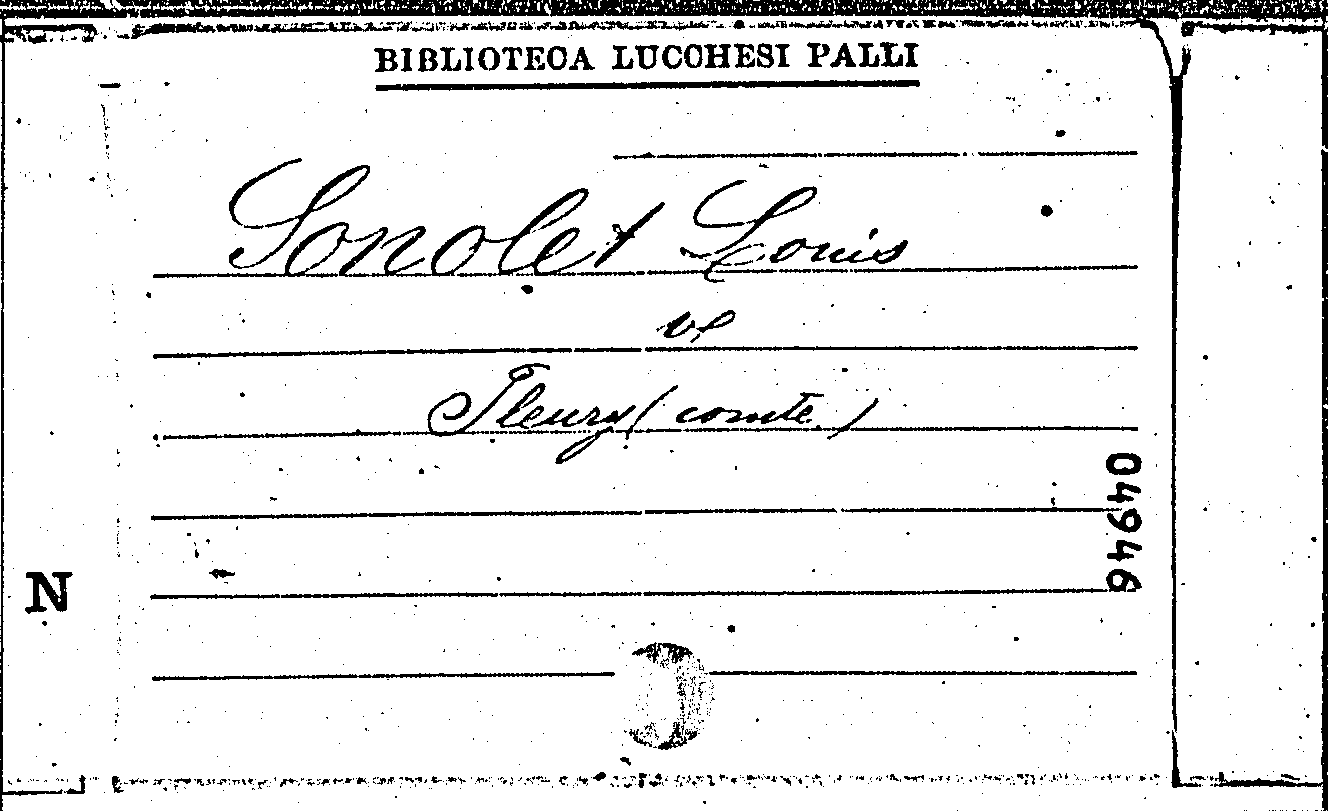 BIBLIOTECA LUCCHESI PALLI
Sonolet Louis
ve
Fleury (comte)
04946
N